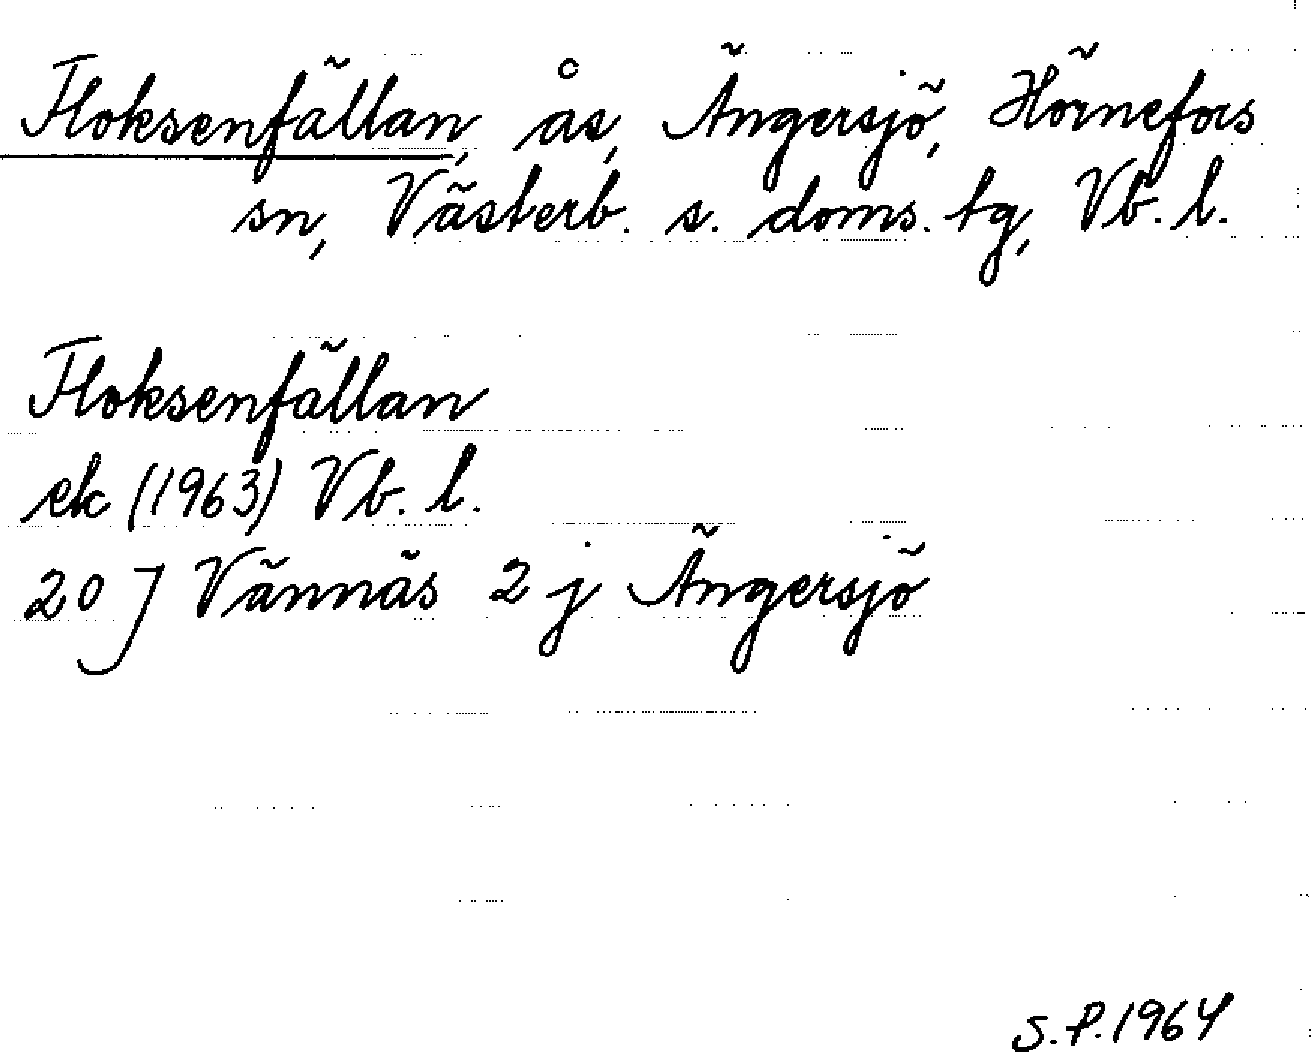 Floksenfällan, ås, Ängersjö, Hörnefors
sn, Västerb. s. doms. tg, Vb. l.
Floksenfällan
ek (1963) Vb. l.
20 J Vännäs 2 j Ängersjö
S.P. 1964